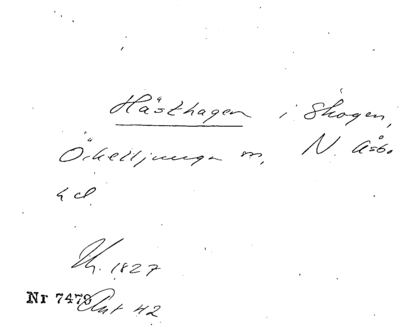 Hästhagen i Skogen,
Örkelljunga sn, N. Åsbo
hd.
Kr. 1827
Nr 7479
Ant 42